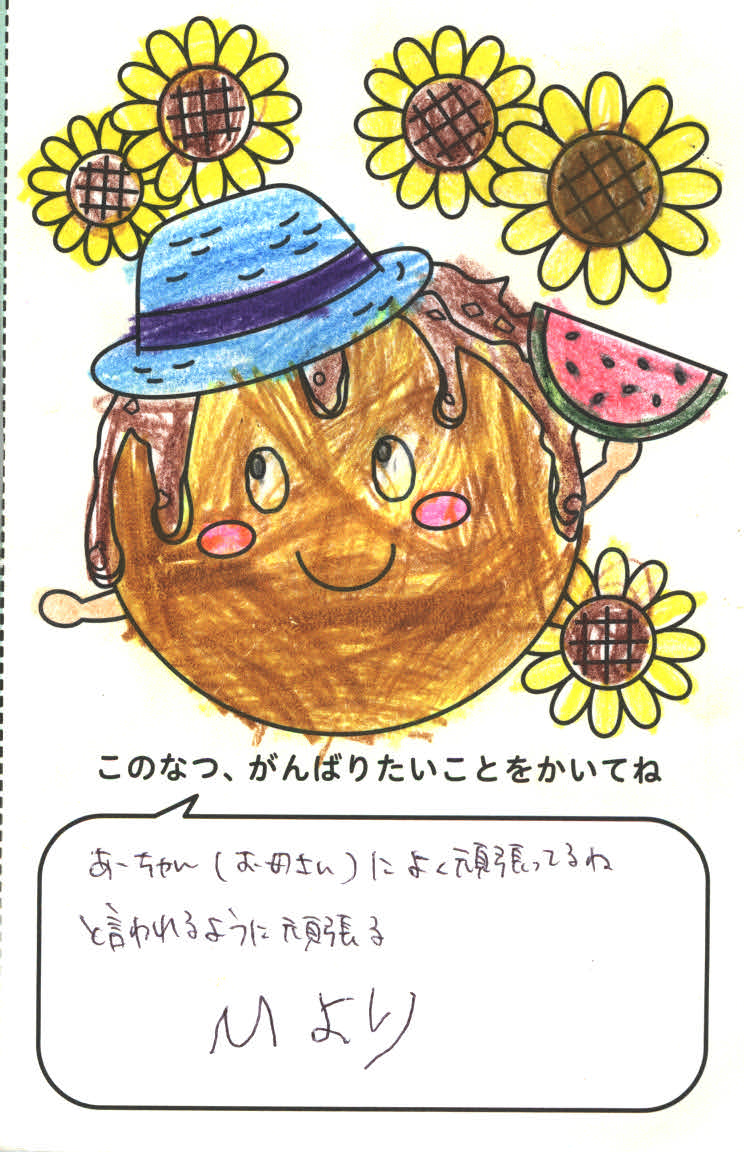 このなつ、がんばりたいことをかいてね
あーちゃん(お母さん)によく頑張ってるね
と言われるように頑張る
Mより